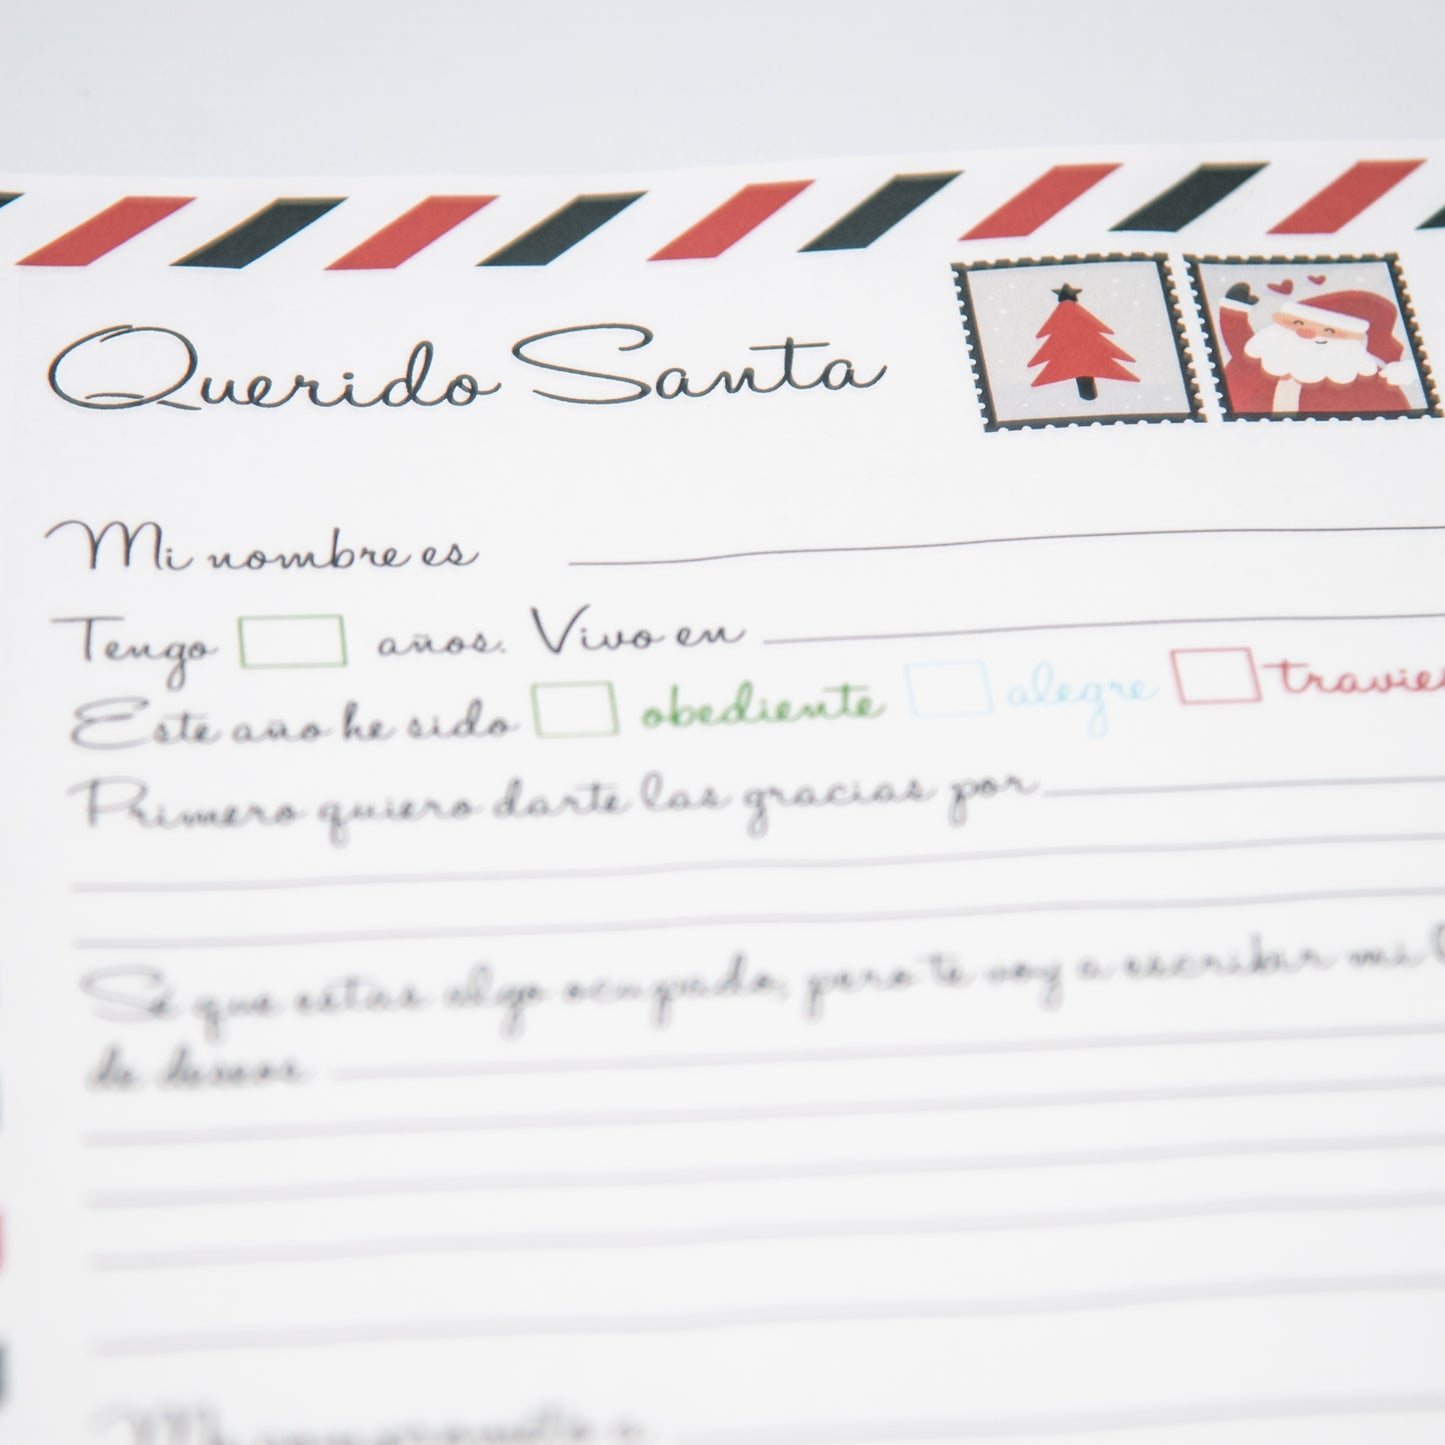 Querido Santa
Mi nombre es
Tengo años. Vivo en
Este año he sido obediente alegre
Primero quiero darte las gracias por
Sé que estas algo ocupado, pero te voy a escribir mi
de deseos